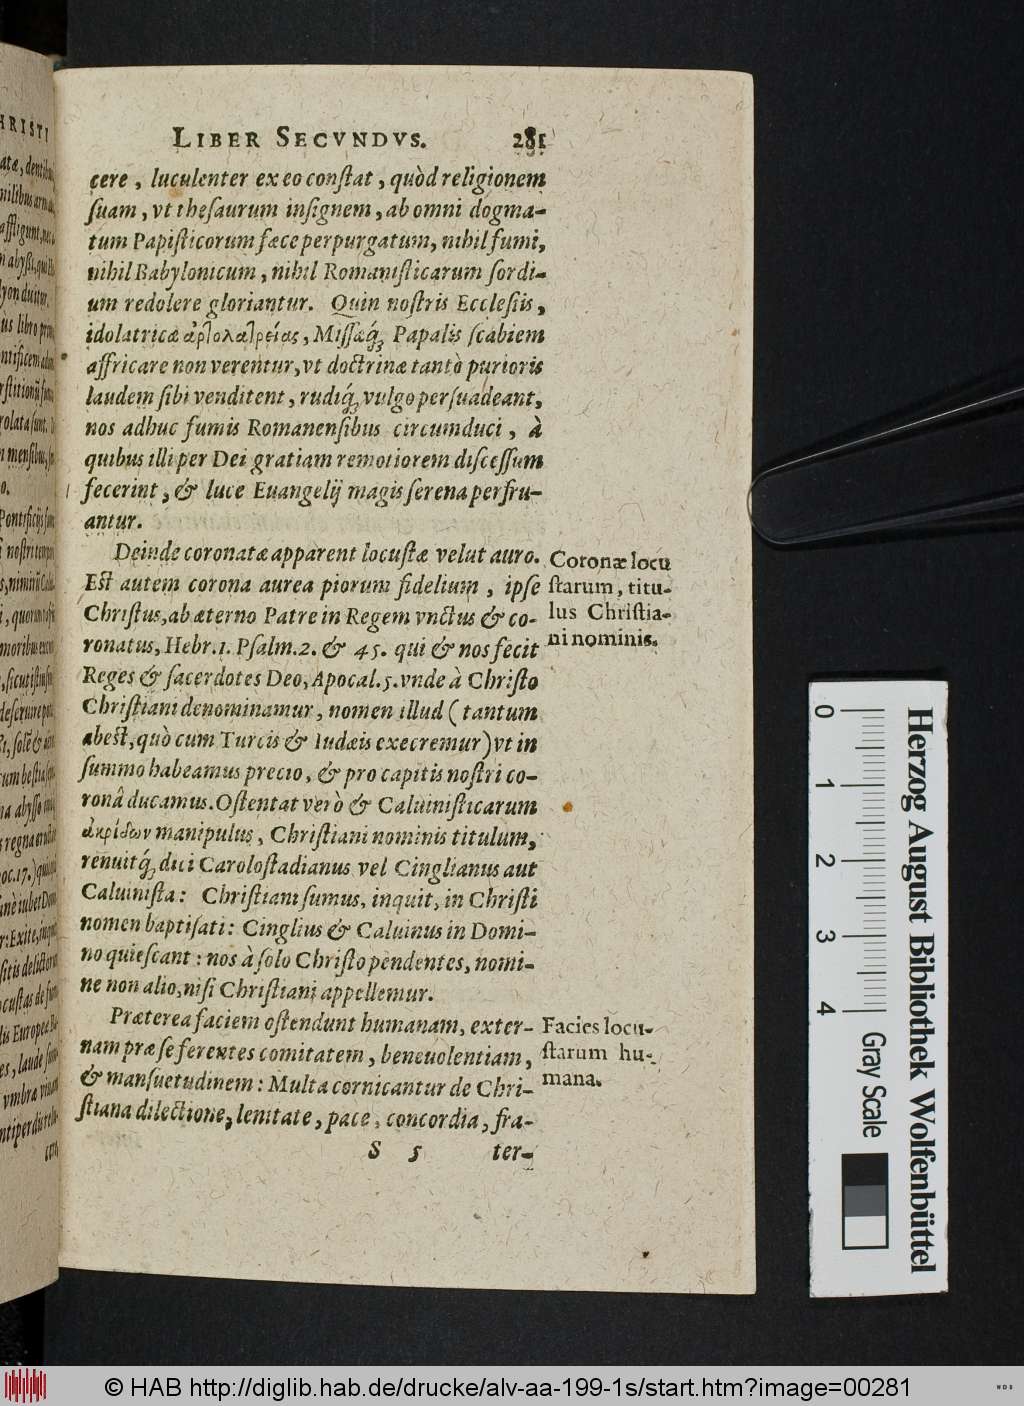 LIBER SECVNDVS. 281
cere, luculenter ex eo conſtat, quòd religionem
ſuam, vt theſaurum inſignem, ab omni dogma-
tum Papiſticorum fæce perpurgatum, nihil fumi,
nihil Babylonicum, nihil Romaniſticarum ſordi-
um redolere gloriantur. Quin noſtris Eccleſiis,
idolatricæ ἀρτολατρείας, Miſſæq́; Papalis ſcabiem
affricare non verentur, vt doctrinæ tantò purioris
laudem ſibi venditent, rudiq́; vulgo perſuadeant,
nos adhuc fumis Romanenſibus circumduci, à
quibus illi per Dei gratiam remotiorem diſceſſum
fecerint, & luce Euangelij magis ſerena perfru-
antur.
Deinde coronatæ apparent locuſtæ velut auro.
Eſt autem corona aurea piorum fidelium, ipſe
Chriſtus, ab æterno Patre in Regem vnctus & co-
ronatus, Hebr. 1. Pſalm. 2. & 45. qui & nos fecit
Reges & ſacerdotes Deo, Apocal. 5. vnde à Chriſto
Chriſtiani denominamur, nomen illud (tantum
abeſt, quò cum Turcis & Iudæis execremur) vt in
ſummo habeamus precio, & pro capitis noſtri co-
ronâ ducamus. Oſtentat verò & Caluiniſticarum
ἀκρίδων manipulus, Chriſtiani nominis titulum,
renuitq́; dici Caroloſtadianus vel Cinglianus aut
Caluiniſta: Chriſtiani ſumus, inquit, in Chriſti
nomen baptiſati: Cinglius & Caluinus in Domi-
no quieſcant: nos à ſolo Chriſto pendentes, nomi-
ne non alio, niſi Chriſtiani appellemur.
Præterea faciem oſtendunt humanam, exter-
nam præ ſe ferentes comitatem, beneuolentiam,
& manſuetudinem: Multa cornicantur de Chri-
ſtiana dilectione, lenitate, pace, concordia, fra-
S 5 ter-
Coronæ locu
ſtarum, titu-
lus Chriſtia-
ni nominis.
Facies locu-
ſtarum hu-
mana.
Herzog August Bibliothek Wolfenbüttel
0 1 2 3 4
Gray Scale
© HAB http://diglib.hab.de/drucke/alv-aa-199-1s/start.htm?image=00281